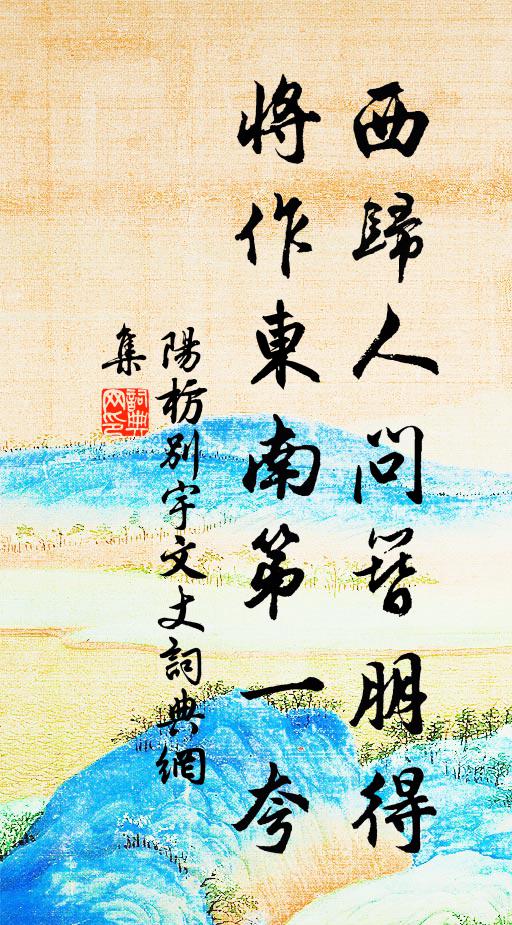 西歸人問簪朋得
將作東南第一夸
陽枋別宇文丈詞典網
集
詞典
网印